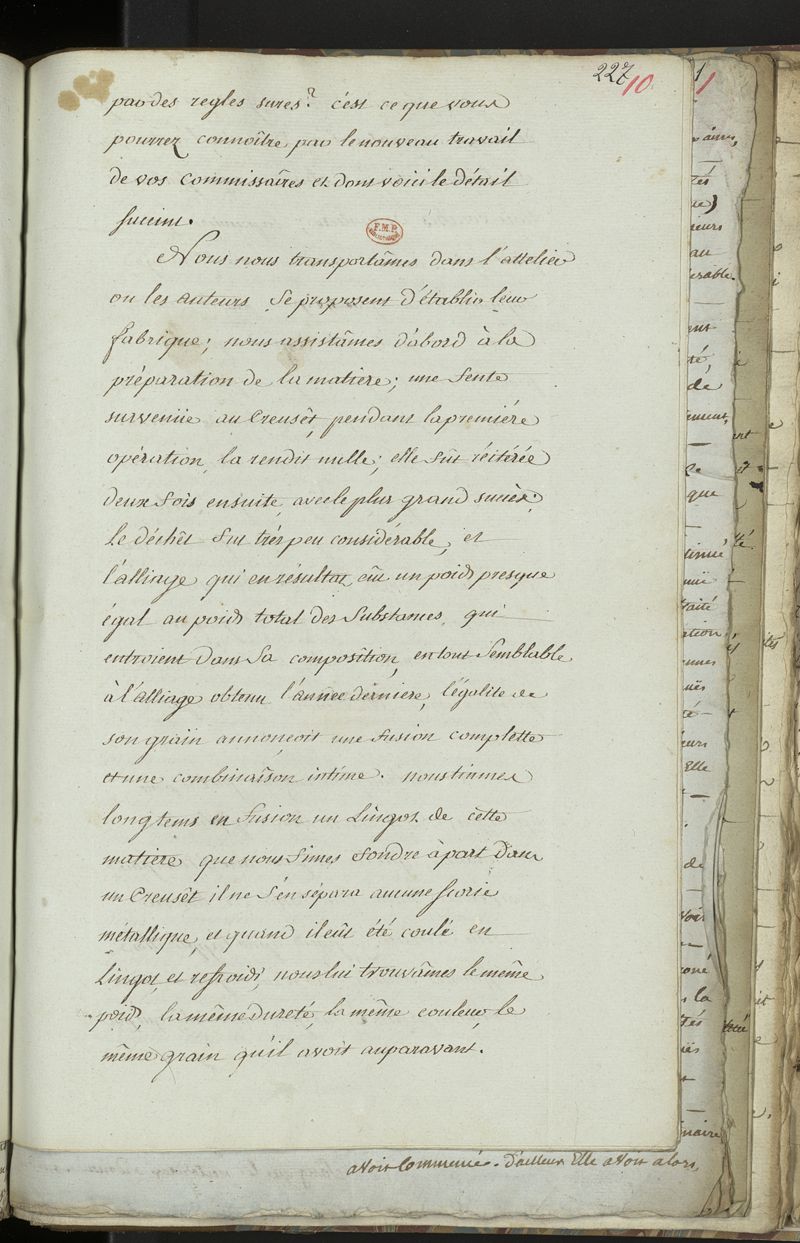 227 10
par des regles sures? c'est ce que vous
pourrez connoître par le nouveau travail
de vos commissaires et dont voici le détail
succint.
F.M.P.
Nous nous transportâmes dans l'attelier
ou les auteurs se proposent d'établir leur
fabrique; nous assistâmes d'abord à la
préparation de la matiere; une fente
survenüe au Creusêt, pendant la premiére
opération, la rendit nulle; elle fût réitérée
deux fois ensuite, avec le plus grand succès;
Le déchêt fut trés peu considérable, et
l'alliage qui en résultat, eût un poids presque
égal au poids total des Substances, qui
entroient dans sa composition, en tout semblable
à l'alliage obtenu l'année dérniere, l'égalite de
son grain annoncoit une fusion complette
et une combinaison intime. nous tinmes
longtems en fusion un Lingot de cette
matiere que nous fimes fondre à part dans
un Creusêt il ne s'en sépara aucune scorie
métallique, et quand il eût été coulé en
Lingot, et refroidi, nous lui trouvâmes le même
poids, la même dureté, la même couleur, le
même grain qu'il avoit auparavant.
avoit Commencé. D'ailleurs Elle avoit alors,